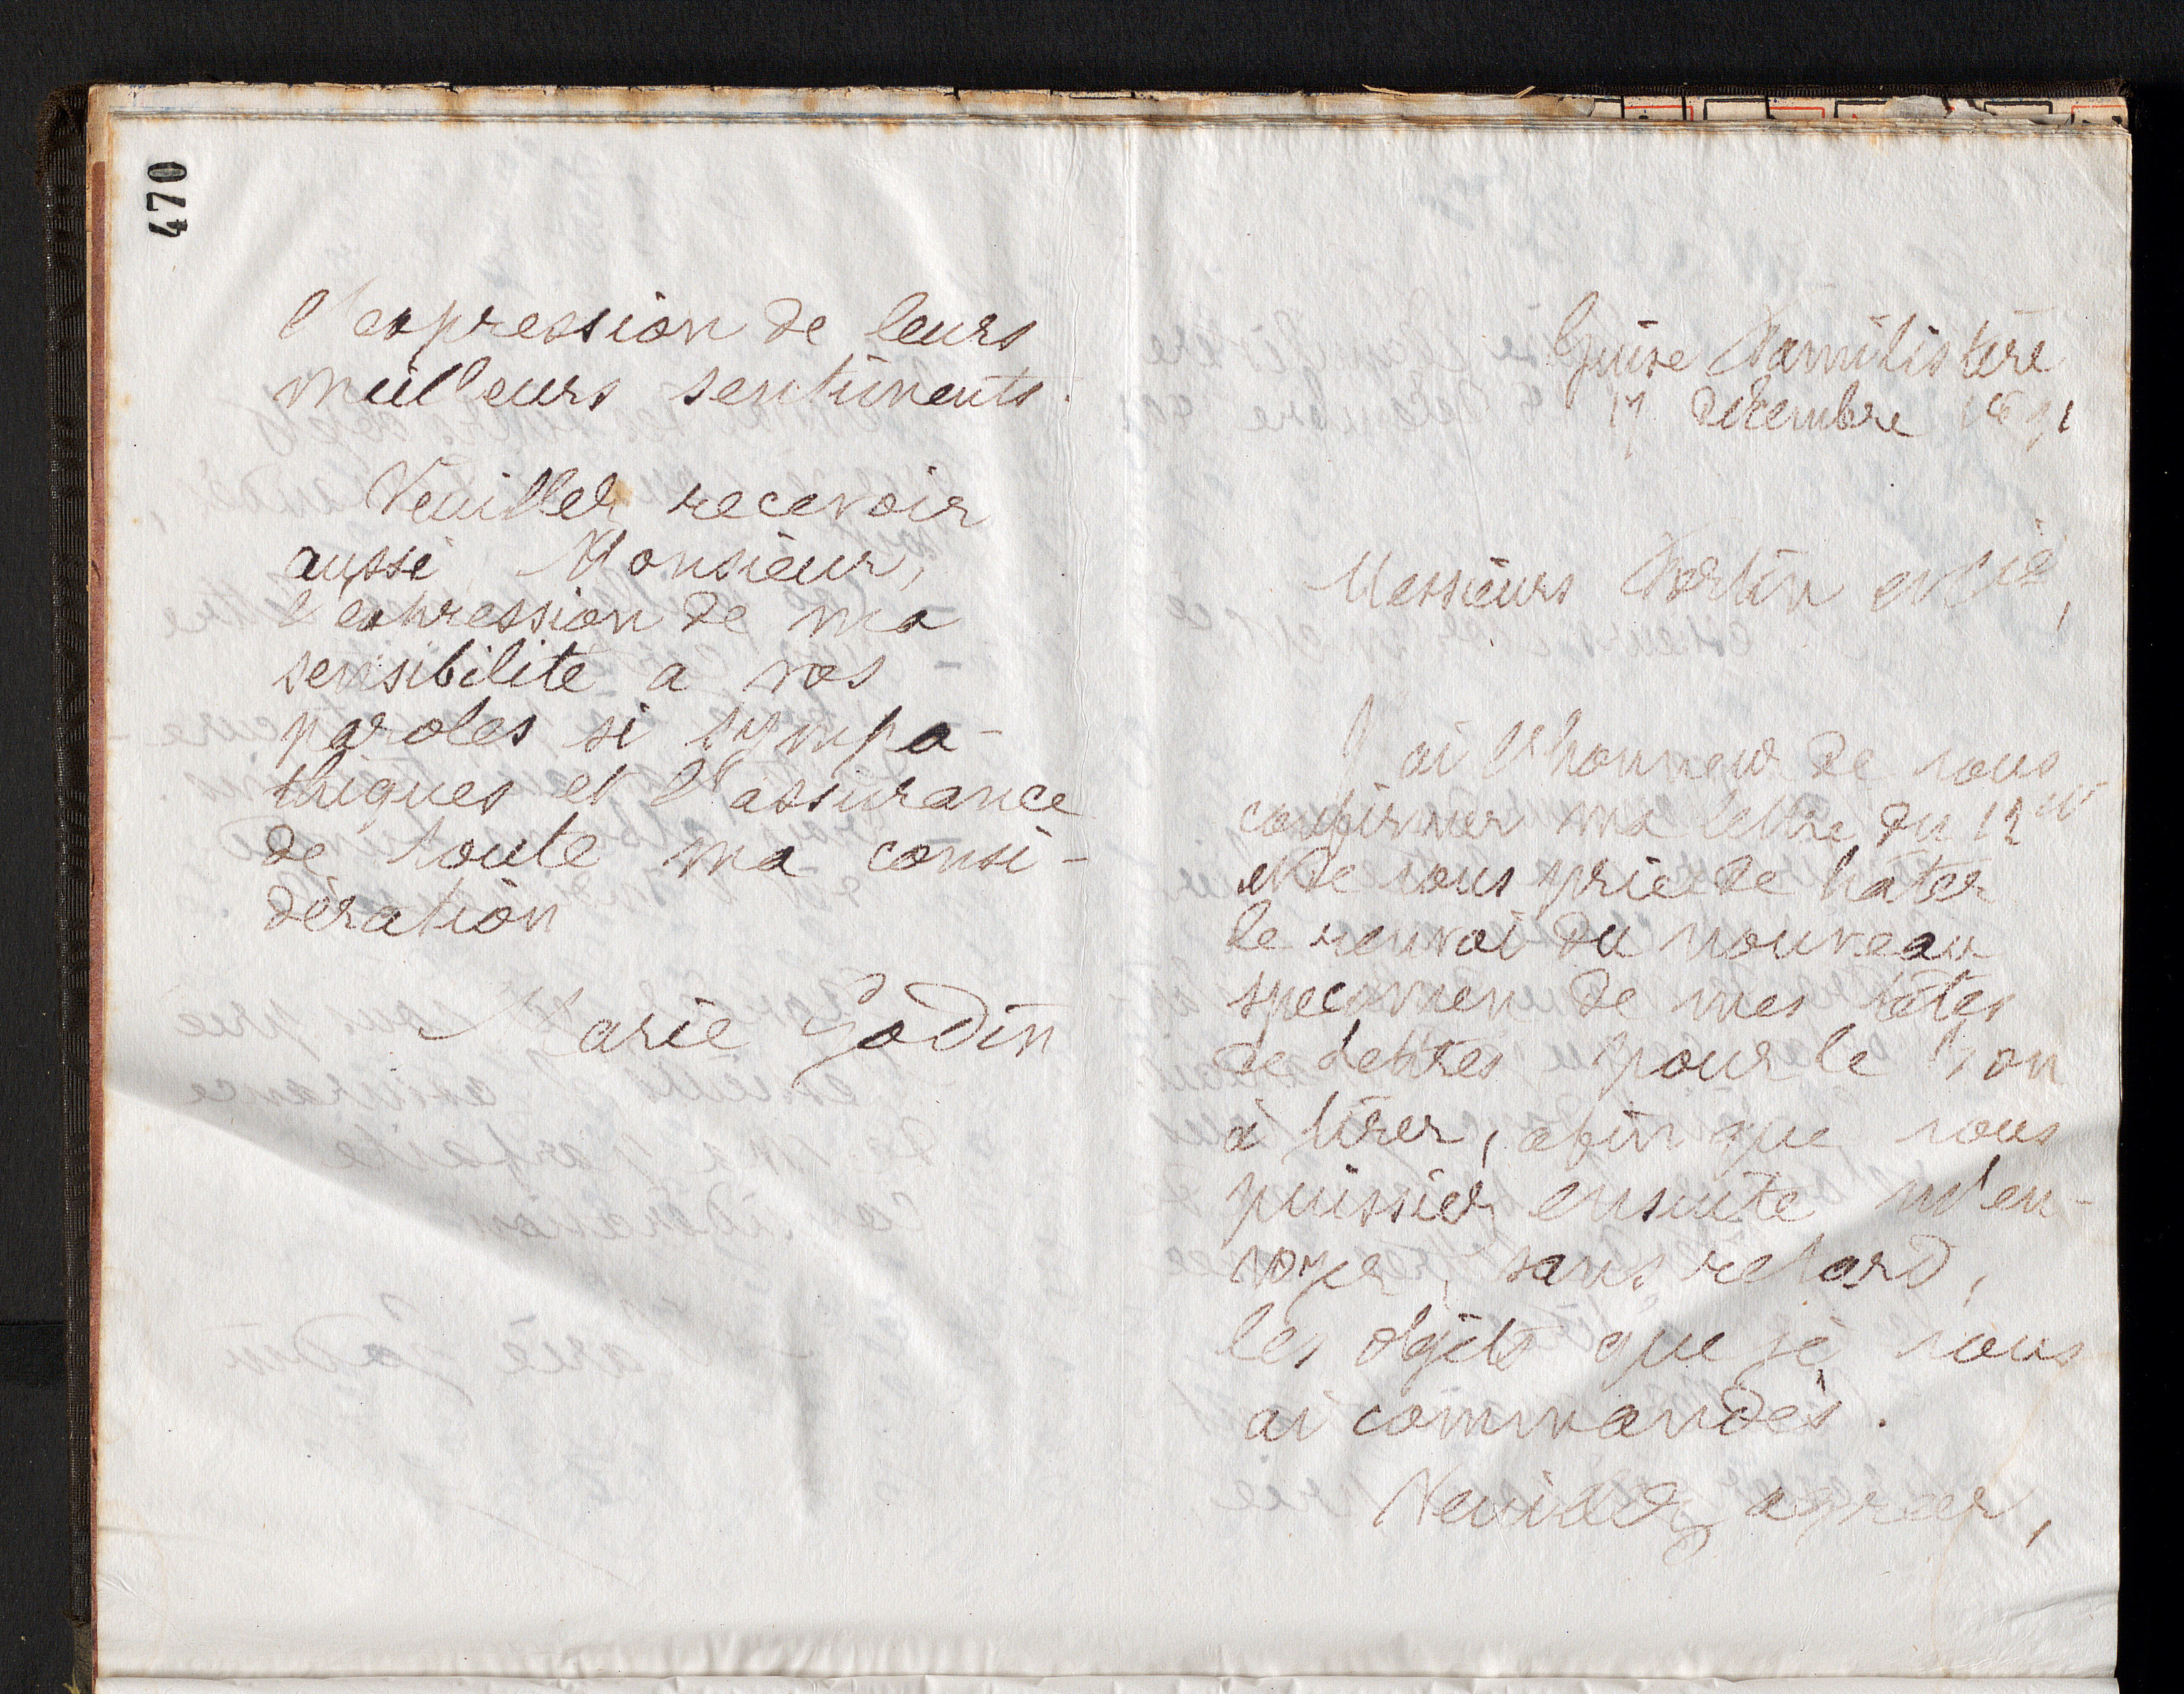 470
l'expression de leurs
meilleurs sentiments.
Veuillez recevoir
aussi, Monsieur,
l'expression de ma
sensibilité a vos
paroles si sympa-
thiques et l'assurance
de toute ma consi-
dération
Marie Godin
Guise Familistère
17 décembre 1891
Messieurs Fortin et Cie,
J'ai l'honneur de vous
confirmer ma lettre du 12 ct
et de vous prier de hâter
le renvoi du nouveau
specimen de mes têtes
de lettres pour le bon
à tirer, afin que vous
puissiez ensuite m'en-
voyer, sans retard,
les objets que je vous
ai commandés.
Veuillez agréer,